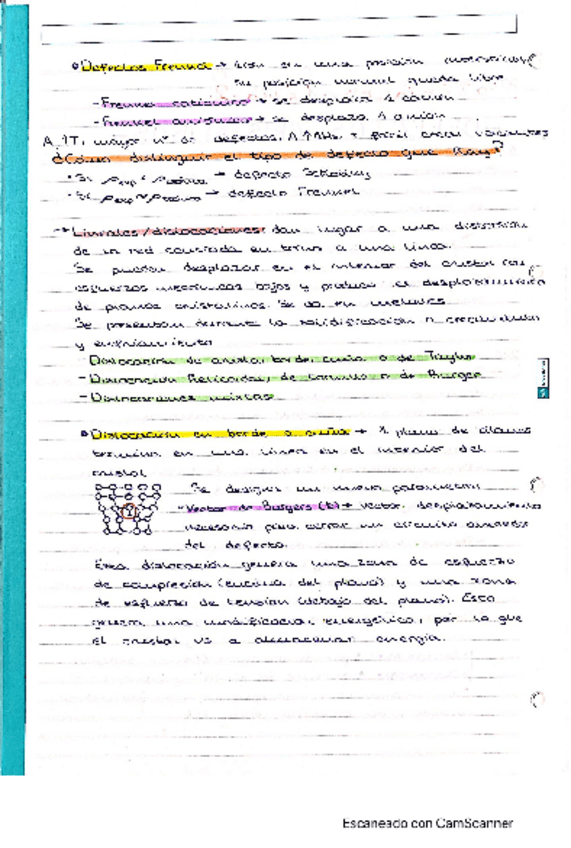 • Defectos Frenkel → ion en una posición intersticial
su posición normal queda libre
- Frenkel catiónico → se desplaza 1 catión
- Frenkel aniónico → se desplaza 1 anión
A ↑T, mayor nº de defectos. A ↑ → fácil crear vacantes
¿Cómo distinguir el tipo de defecto que hay?
• Si ρexp < → defecto Schottky
• Si ρexp ≈ → defecto Frenkel
→ Lineales/dislocaciones: dan lugar a una distorsión
de la red causada en torno a una línea.
Se pueden desplazar en el interior del cristal con
esfuerzos mecánicos bajos y produce el desplazamiento
de planos cristalinos. Se da en metales
Se presentan durante la solidificación
y enfriamiento
- Dislocación de arista, borde, cuña o de Taylor
- Dislocación Helicoidal, de tornillo o de Burger
- Dislocaciones mixtas
• Dislocación en borde o cuña → 1 plano de átomos
termina en una línea en el interior del
cristal
Se designa un nuevo parámetro
- Vector de Burgers (b) → vector desplazamiento
necesario para cerrar un circuito alrededor
del defecto.
Esta dislocación genera una zona de esfuerzo
de compresión (encima del plano) y una zona
de esfuerzo de tensión (debajo del plano). Esto
genera una modificación energética, por lo que
el cristal va a almacenar energía.
Escaneado con CamScanner